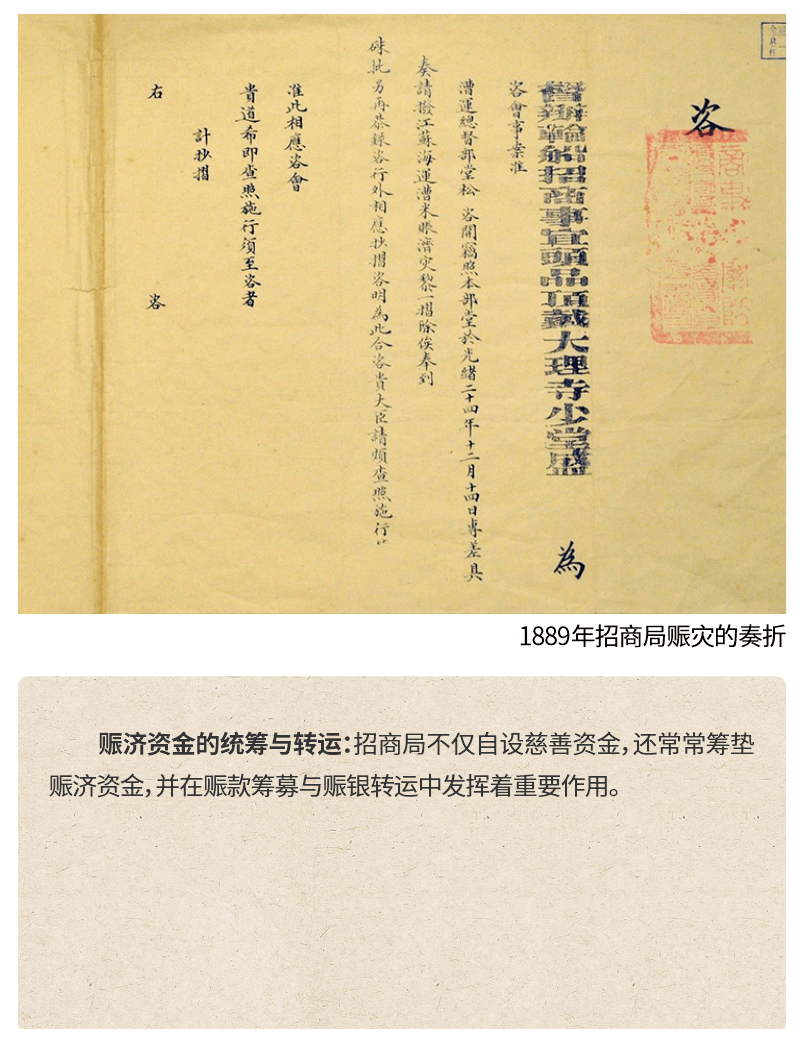 咨
督辦輪船招商事宜頭品頂戴大理寺少堂盛 為
咨會事案准
漕運總督部堂松 咨開竊照本部堂於光緒二十四年十二月十四日專差具
奏請撥江蘇海運漕米賬濟災黎一摺除俟奉到
硃批另再恭錄咨行外相應抄摺咨明為此合咨貴大臣請煩查照施行等
准此相應咨會
貴道希即查照施行須至咨者
計抄摺
右 咨
1889年招商局赈灾的奏折
赈济资金的统筹与转运：招商局不仅自设慈善资金，还常常筹垫
赈济资金，并在赈款筹募与赈银转运中发挥着重要作用。